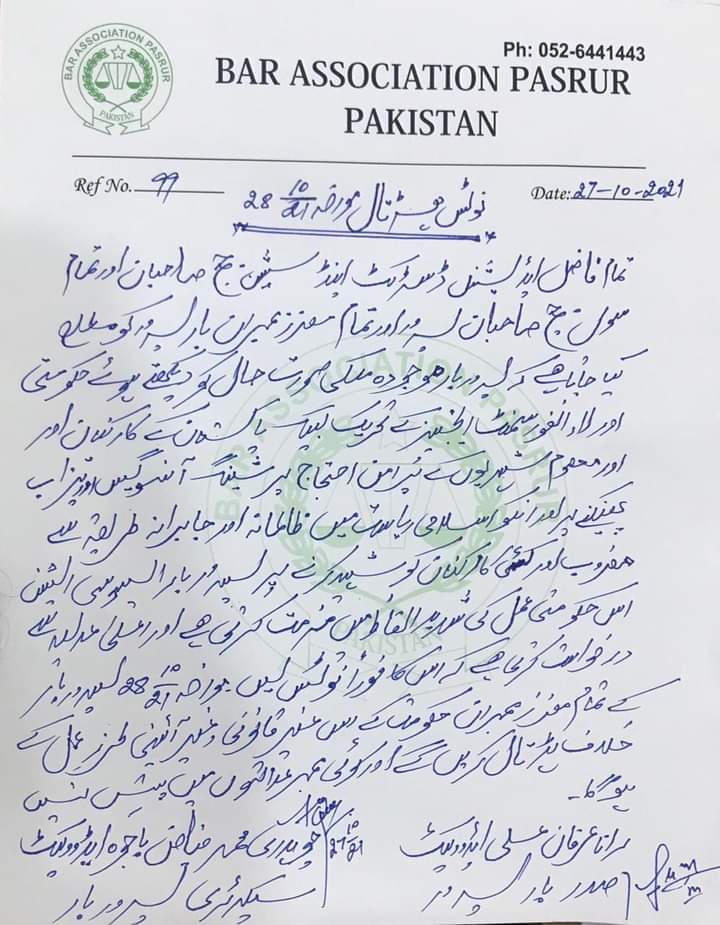 BAR ASSOCIATION PASRUR
PAKISTAN
Ph: 052-6441443
BAR ASSOCIATION PASRUR
PAKISTAN
Ref No. 99
Date: 27-10-2021
نوٹس ہڑتال مورخہ 28 10/21
تمام فاضل ایڈیشنل ڈسٹرکٹ اینڈ سیشن جج صاحبان اور تمام
سول جج صاحبان پسرور اور تمام معزز ممبران بار پسرور کو مطلع
کیا جاتا ہے کہ پسرور بار موجودہ ملکی صورت حال کو دیکھتے ہوئے حکومتی
اور لاء انفورسمنٹ ایجنسیز کے تحریک لبیک پاکستان کے کارکنان اور
اور معصوم شہریوں کے پُرامن احتجاج پر شیلنگ آنسو گیس اور تیزاب
پھینکنے پر اور انکو اسلامی ریاست میں ظالمانہ اور جابرانہ طریقہ سے
مضروب اور کئی کارکنان کو شہید کرنے پر پسرور بار ایسوسی ایشن
اس حکومتی عمل کی شدید الفاظ میں مذمت کرتی ہے اور اعلی عدلیہ سے
درخواست کرتی ہے کہ اس کا فوراً نوٹس لیں مورخہ 28 10/21 پسرور بار
کے تمام معزز ممبران حکومت کے اس غیر قانونی و غیر آئینی طرز عمل کے
خلاف ہڑتال کریں گے اور کوئی ممبر عدالتوں میں پیش نہیں
ہوگا۔
رانا عرفان علی ایڈووکیٹ
صدر بار پسرور
27 10/21
چوہدری محمد فیاض باجوہ ایڈووکیٹ
سیکرٹری پسرور بار
BAR ASSOCIATION PASRUR